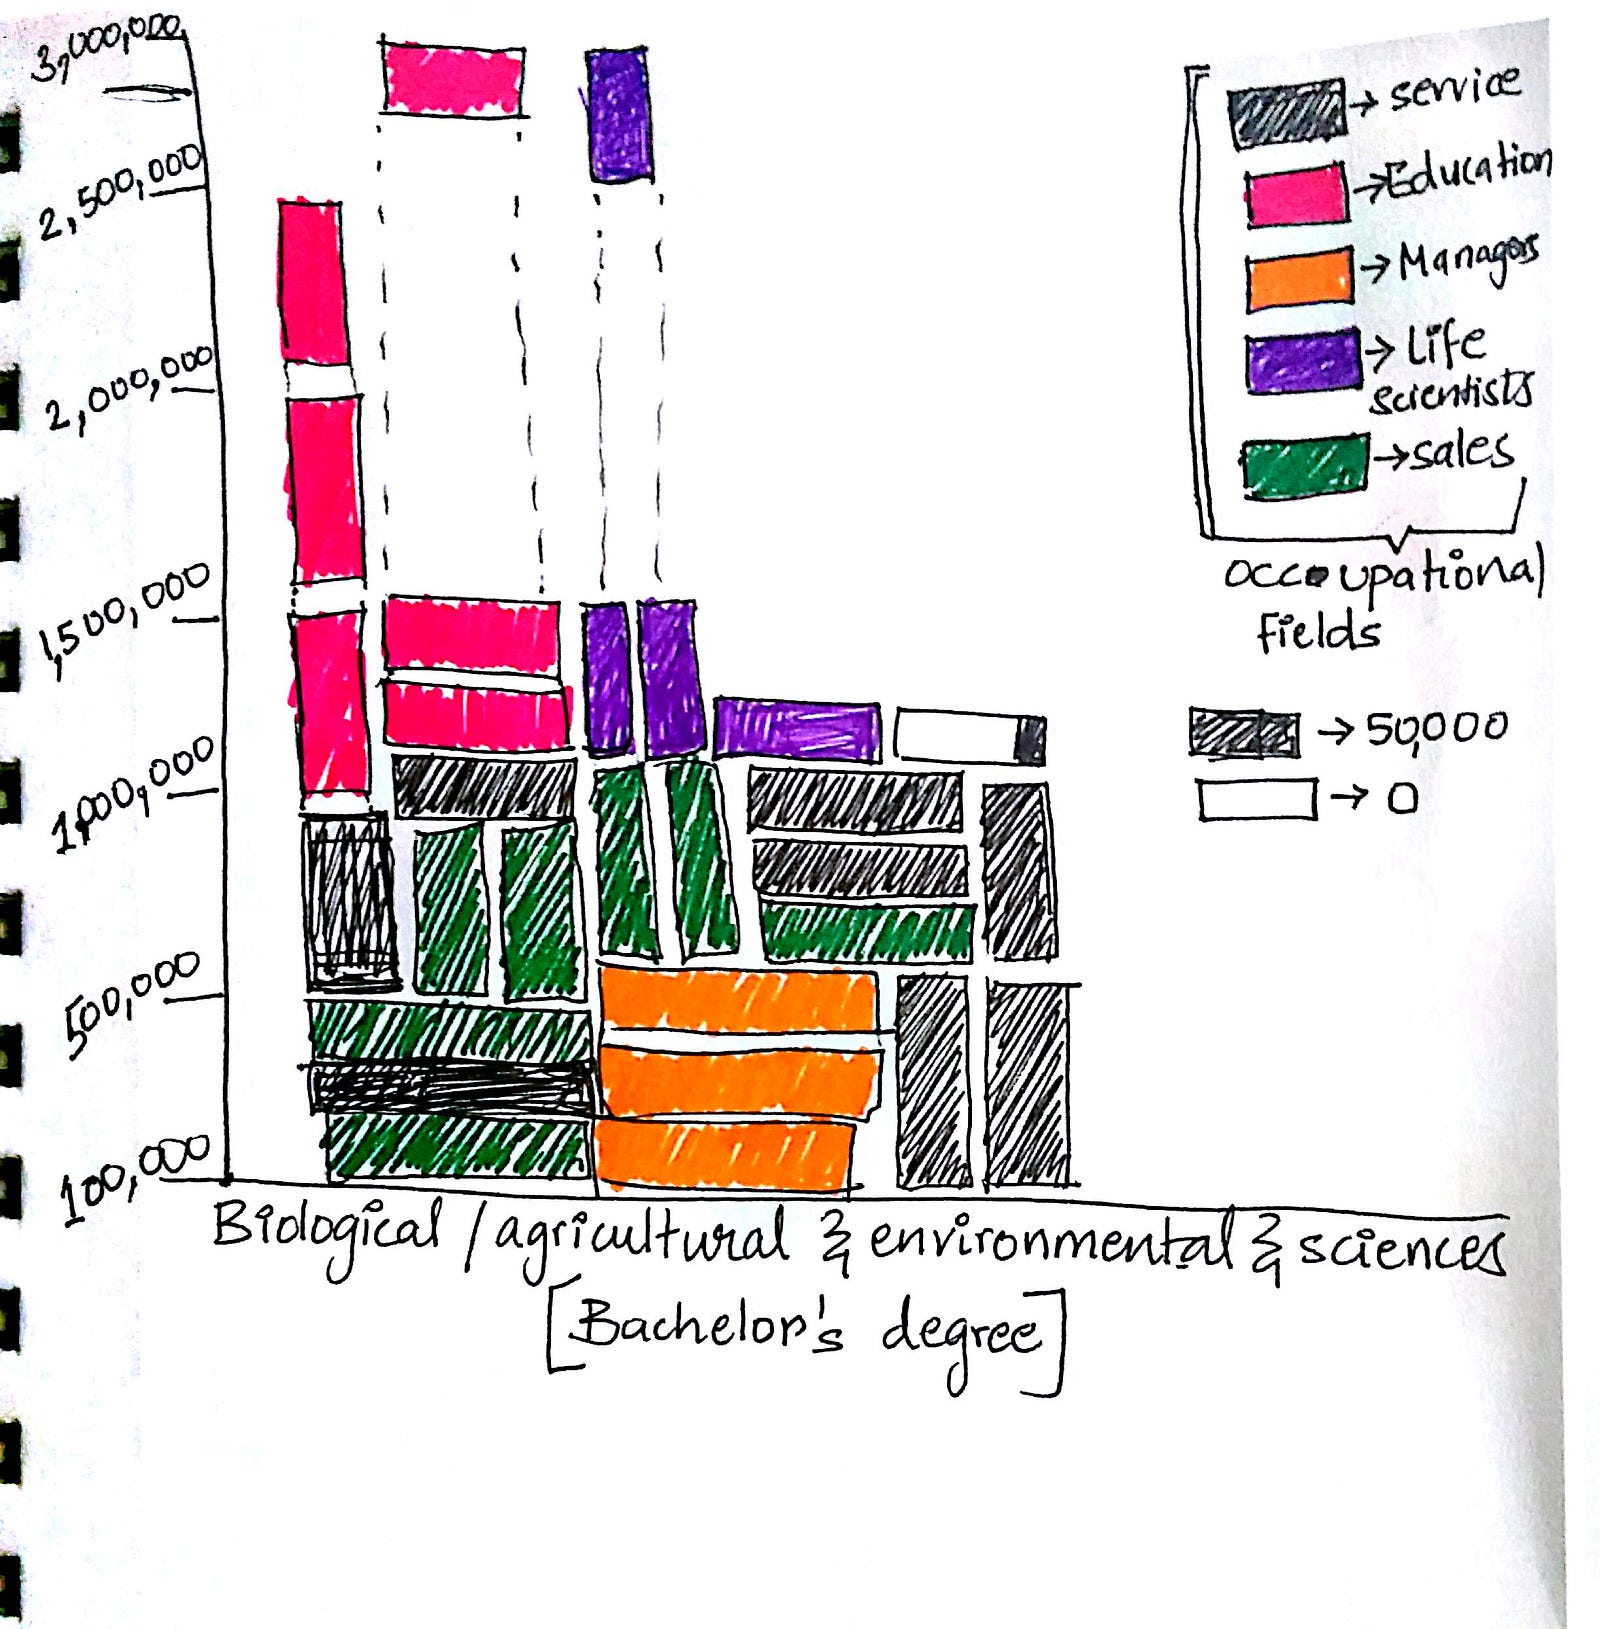 3,000,000
2,500,000
2,000,000
1,500,000
1,000,000
500,000
100,000
Biological / agricultural & environmental & sciences
[Bachelor's degree]
→ service
→ Education
→ Managers
→ Life
scientists
→ sales
occupational
fields
→ 50,000
→ 0